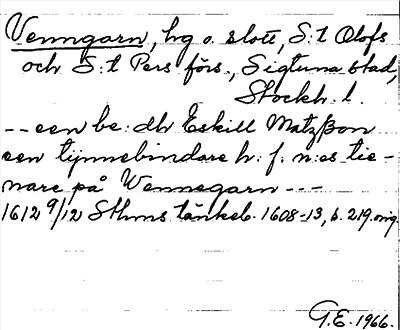 Venngarn, hg o. slott, S:t Olofs
och S:t Pers förs., Sigtuna stad,
Stockh. l.
-- een be:dh Eskill Matzßon
een tynnebindare h. f. n:es tie-
nare på Wennegarn ---
1612 9/12 Sthms tänkeb. 1608-13, s. 219. orig.
G.E. 1966.